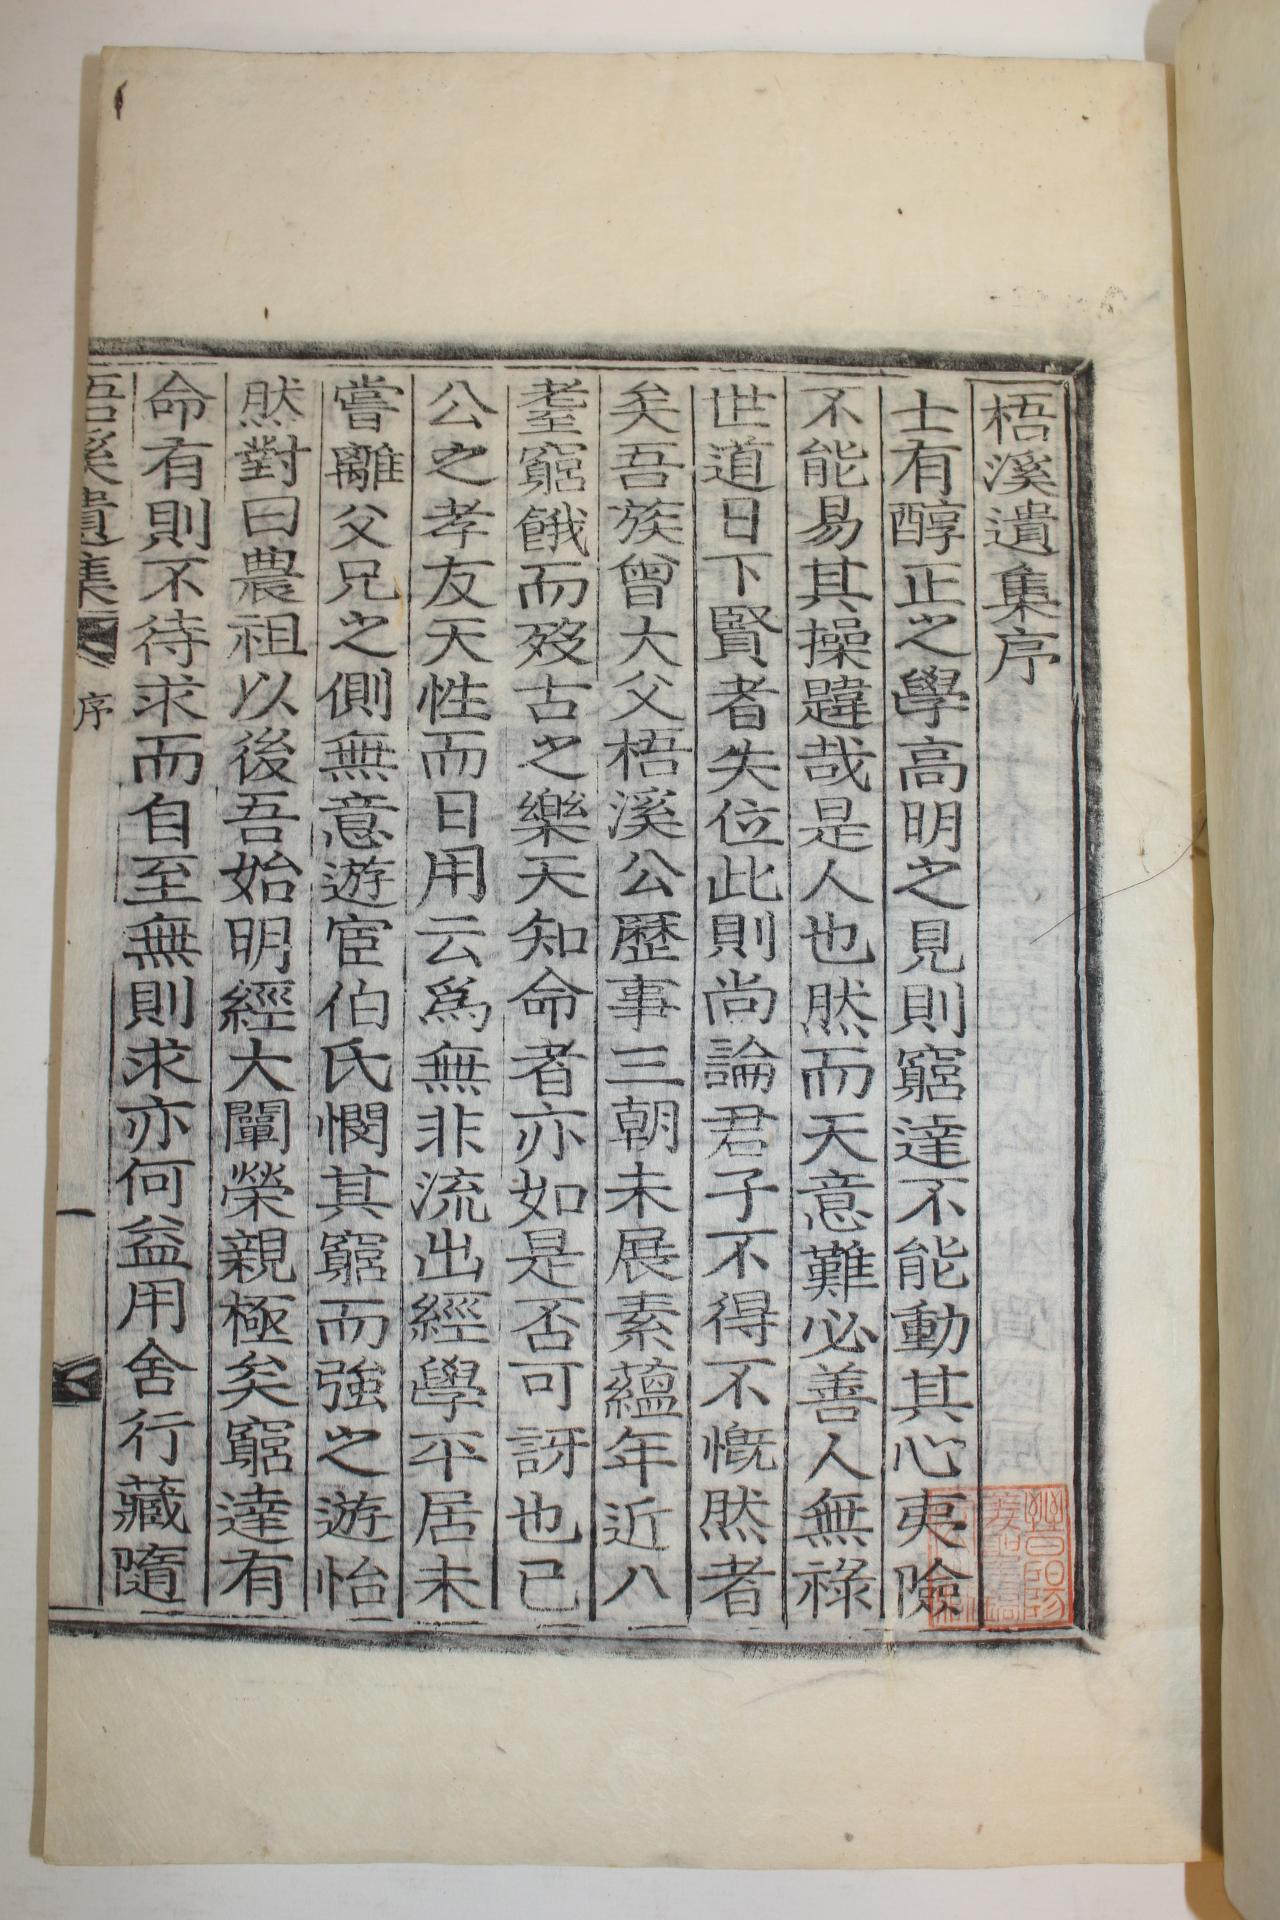 梧溪遺集序
士有醇正之學高明之見則窮達不能動其心夷險
不能易其操韙哉是人也然而天意難必善人無祿
世道日下賢者失位此則尚論君子不得不慨然者
矣吾族曾大父梧溪公歷事三朝未展素蘊年近八
耋窮餓而歿古之樂天知命者亦如是否可訝也已
公之孝友天性而日用云爲無非流出經學平居未
嘗離父兄之側無意遊宦伯氏憫其窮而強之遊怡
然對曰農祖以後吾始明經大闡榮親極矣窮達有
命有則不待求而自至無則求亦何益用舍行藏隨
梧溪遺集 序 一